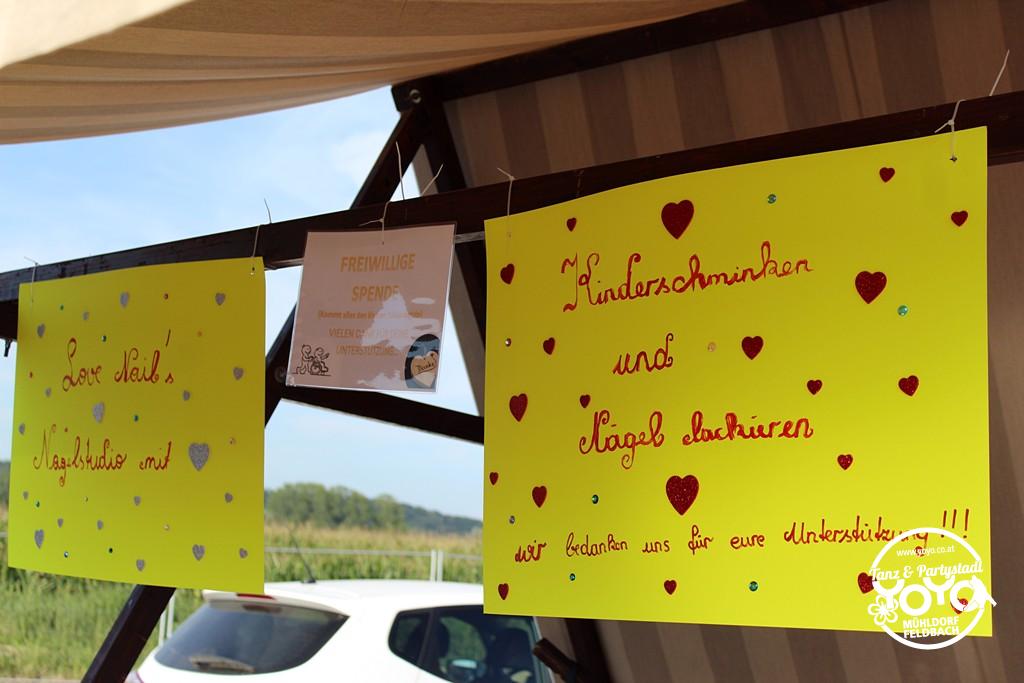 Love Nail's
Nagelstudio mit
FREIWILLIGE
SPENDE
VIELEN DANK FÜR DEINE
UNTERSTÜTZUNG
Danke
Kinderschminken
und
Nägel lackieren
wir bedanken uns für eure Unterstützung!!!
www.yoyo.co.at
Tanz & Partystadl
YOYO
MÜHLDORF
FELDBACH